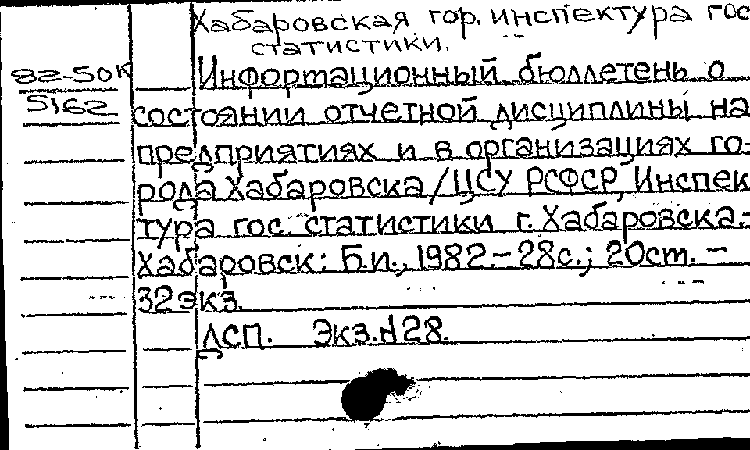 Хабаровская гор. инспектура гос
статистики.
82-50к
5162
Информационный бюллетень о
состоянии отчетной дисциплины на
предприятиях и в организациях го-
рода Хабаровска/ЦСУ РСФСР, Инспек
тура гос. статистики г. Хабаровска.-
Хабаровск: Б.и., 1982.-28с.; 20см. -
32экз.
ДСП. Экз.№28.